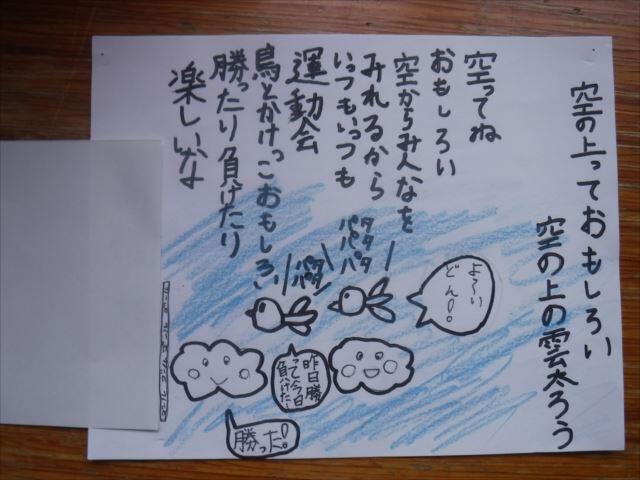 空の上っておもしろい
空の上の雲太ろう
空ってね
おもしろい
空からみんなを
みれるから
いつもいつも
運動会
鳥とかけっこおもしろい
勝ったり負けたり
楽しいな
パタ
パタ
パタ
パタ
パタ
よーい
どん!。
昨日勝
って今日
負けた!
勝った!。